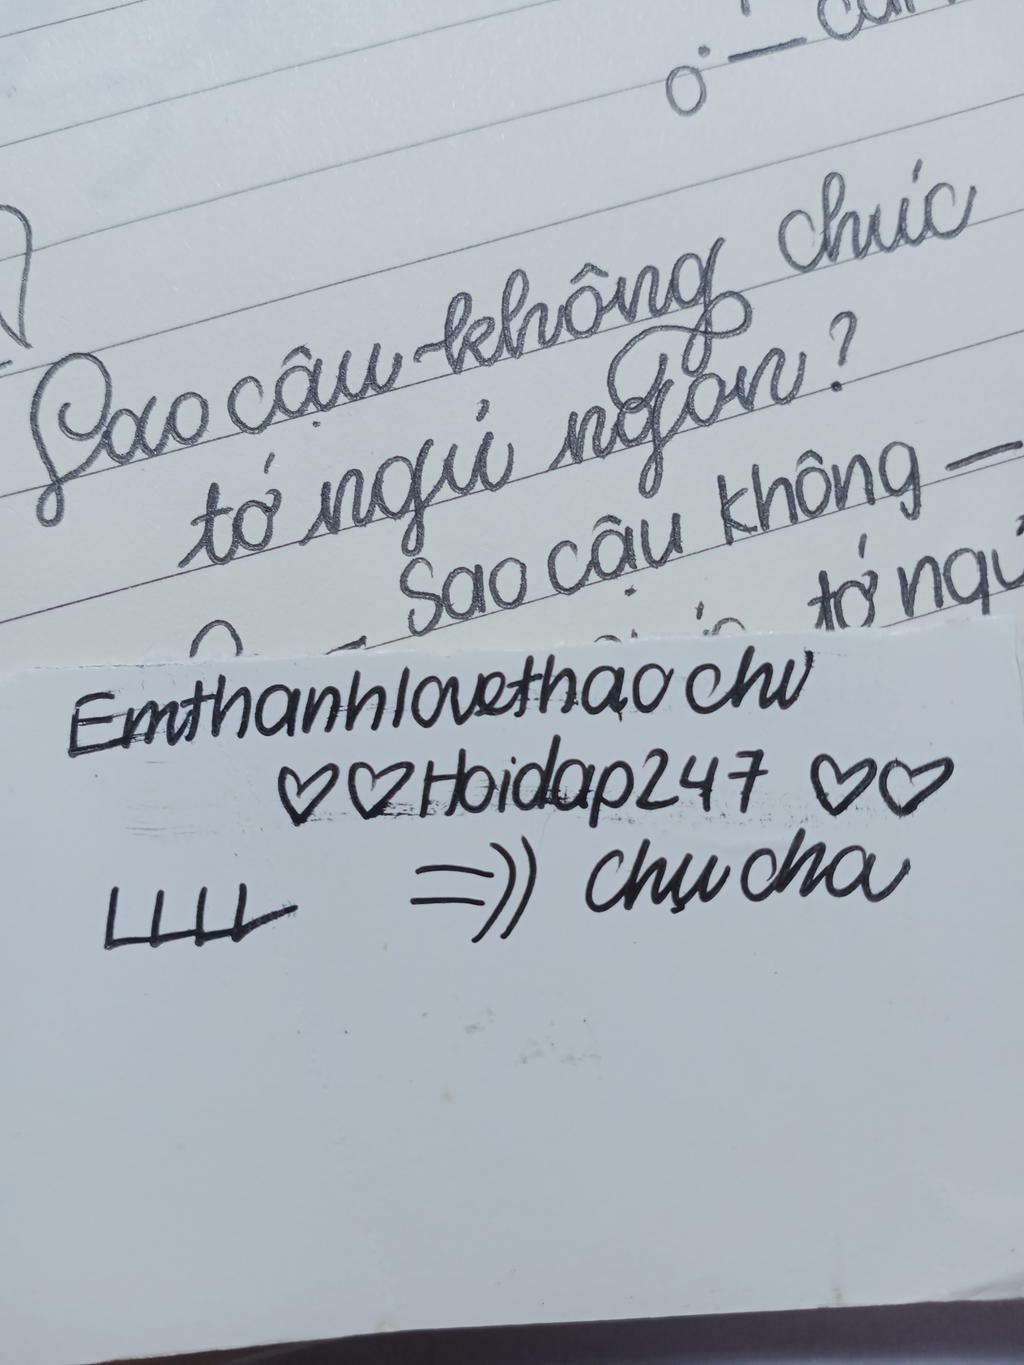 Sao cậu không chúc
tớ ngủ ngon?
Sao cậu không —
tớ ngủ
Emthanhlovethạo chu
♡♡Hoidap247 ♡♡
=)) chụ cha